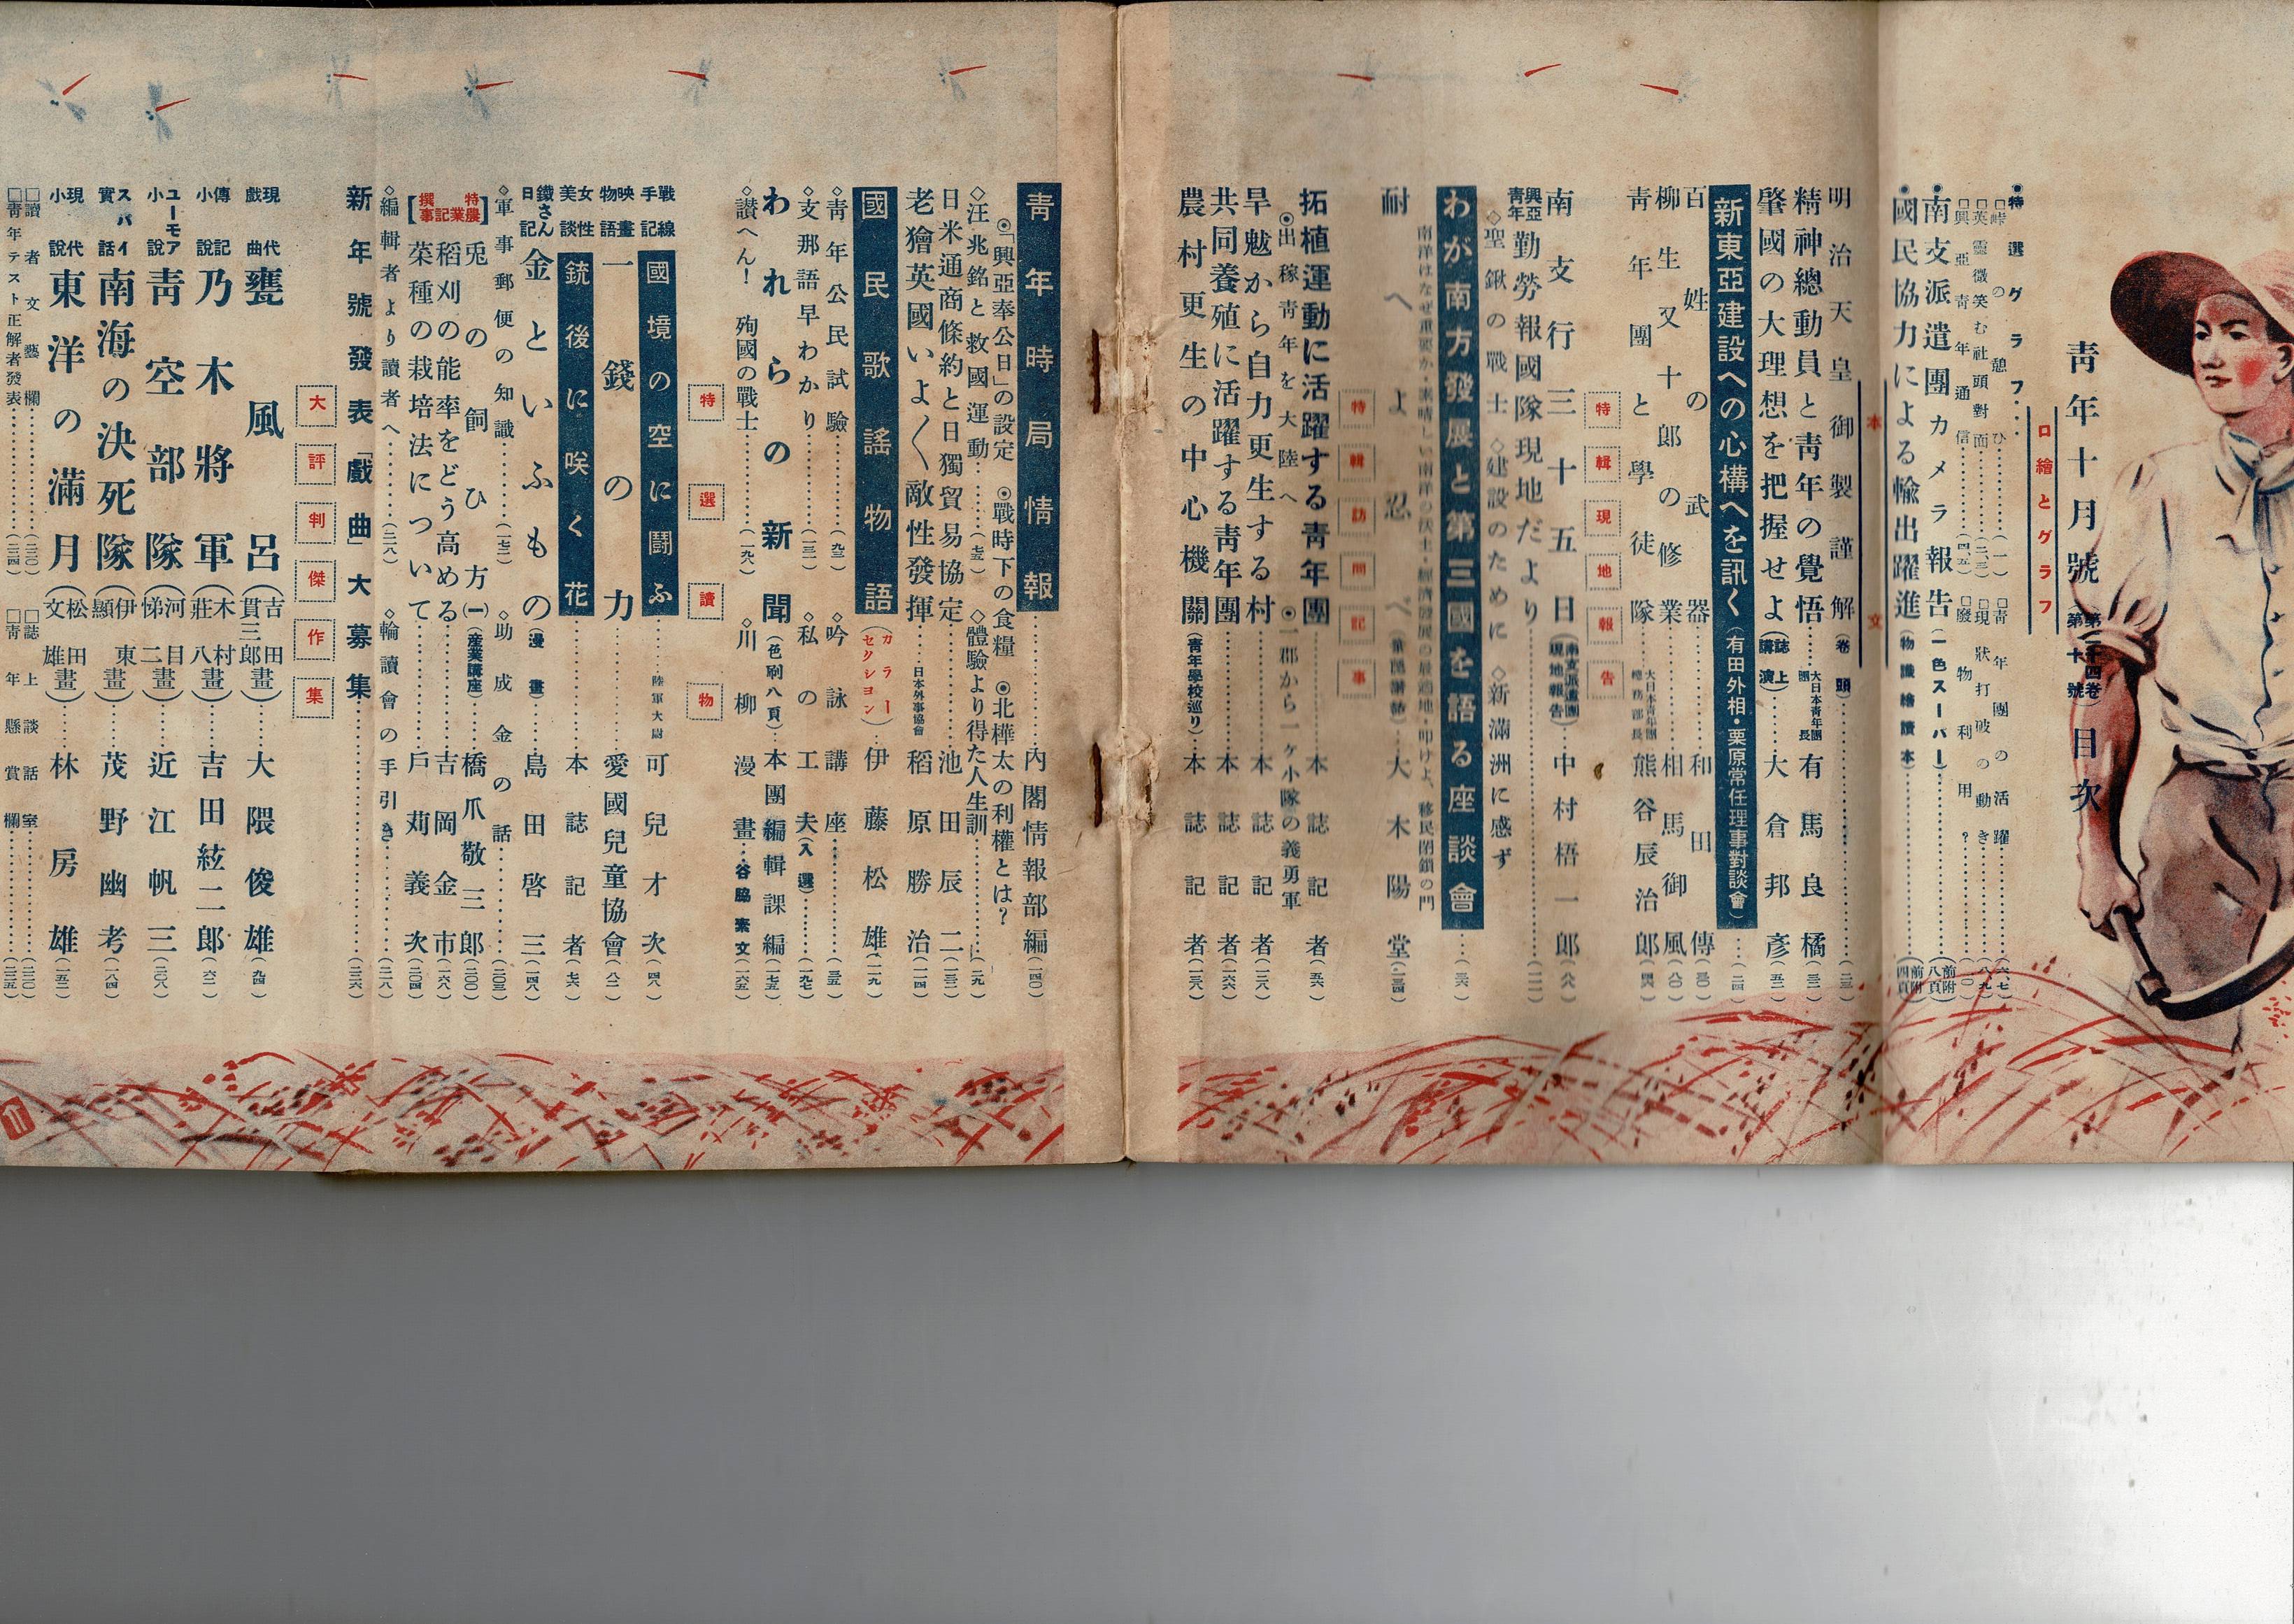 靑年十月號(第二十四卷第十號)目次
口繪とグラフ
●特選グラフ‥
□峠の憩ひ‥‥(一)□靑年團の活躍‥‥(六、七)
□英靈微笑む社頭對面‥‥(二、三)□現狀打破の動き‥‥(八、九)
□興亞靑年通信‥‥(四、五)□廢物利用?‥‥(一〇)
●南支派遣團カメラ報告(一色スーパー)‥‥(前附八頁)
●國民協力による輸出躍進(物識繪讀本)‥‥(前附四頁)
本文
明治天皇御製謹解(卷頭)‥‥
精神總動員と靑年の覺悟‥‥大日本靑年團團長 有馬良橘
肇國の大理想を把握せよ(誌上講演)‥‥大倉邦彥(五二)
新東亞建設への心構へを訊く(有田外相・栗原常任理事對談會)‥‥
百姓の武器‥‥和田傳
柳生又十郎の修業‥‥相馬御風(八〇)
靑年團と學徒隊‥‥大日本靑年團總務部長 熊谷辰治郎
特輯現地報告
南支行三十五日(南支派遣團現地報告)‥‥中村梧一郎(八六)
興亞靑年勤勞報國隊現地だより‥‥
◇聖鍬の戰士 ◇建設のために ◇新滿洲に感ず
わが南方發展と第三國を語る座談會‥‥
南洋はなぜ重要か・素晴しい南洋の沃土・經濟發展の最適地・叩けよ、移民閉鎖の門
耐へよ忍べ‥‥大木陽堂
特輯訪問記事
拓植運動に活躍する靑年團‥‥本誌記者(五六)
◉出稼靑年を大陸へ ◉一郡から一ケ小隊の義勇軍
旱魃から自力更生する村‥‥本誌記者
共同養殖に活躍する靑年團‥‥本誌記者
農村更生の中心機關(靑年學校巡り)‥‥本誌記者
靑年時局情報‥‥內閣情報部編(一四〇)
◉「興亞奉公日」の設定 ◉戰時下の食糧 ◉北樺太の利權とは?
◇汪兆銘と救國運動‥‥ ◇體驗より得た人生訓‥‥
日米通商條約と日獨貿易協定‥‥池田辰二
老獪英國いよ〱敵性發揮‥‥日本外事協會 稻原勝治(一一四)
國民歌謠物語(カラーセクション)‥‥伊藤松雄
◇靑年公民試驗‥‥ ◇吟詠講座‥‥
◇支那語早わかり‥‥ ◇私の工夫(入選)‥‥
われらの新聞(色刷八頁)‥‥本團編輯課編
◇讃へん!殉國の戰士‥‥ ◇川柳漫畫‥‥谷脇素文
特選讀物
戰線手記 國境の空に鬪ふ‥‥陸軍大尉 可兒才次(四八)
映畫物語 一錢の力‥‥愛國兒童協會
女性美談 銃後に咲く花‥‥本誌記者(七六)
鐵さん日記 金といふもの(漫畫)‥‥島田啓三
◇軍事郵便の知識‥‥ ◇助成金の話‥‥
【特撰農業記事】
兎の飼ひ方(一)(產業講座)‥‥橋爪敬三郎
稻刈の能率をどう高める‥‥吉岡金市
菜種の栽培法について‥‥戶苅義次
◇編輯者より讀者へ‥‥ ◇輪讀會の手引き‥‥
新年號發表「戲曲」大募集‥‥
大評判傑作集
現代戲曲 甕風呂(吉田貫三郎畫)‥‥大隈俊雄(九四)
傳記小說 乃木將軍(木村莊八畫)‥‥吉田絃二郎
ユーモア小說 靑空部隊(河目悌二畫)‥‥近江帆三
スパイ實話 南海の決死隊(伊東顯畫)‥‥茂野幽考(一八四)
現代小說 東洋の滿月(松田文雄畫)‥‥林房雄
□讀者文藝欄‥‥ □誌上談話室‥‥
□靑年テスト正解者發表‥‥ □靑年懸賞欄‥‥